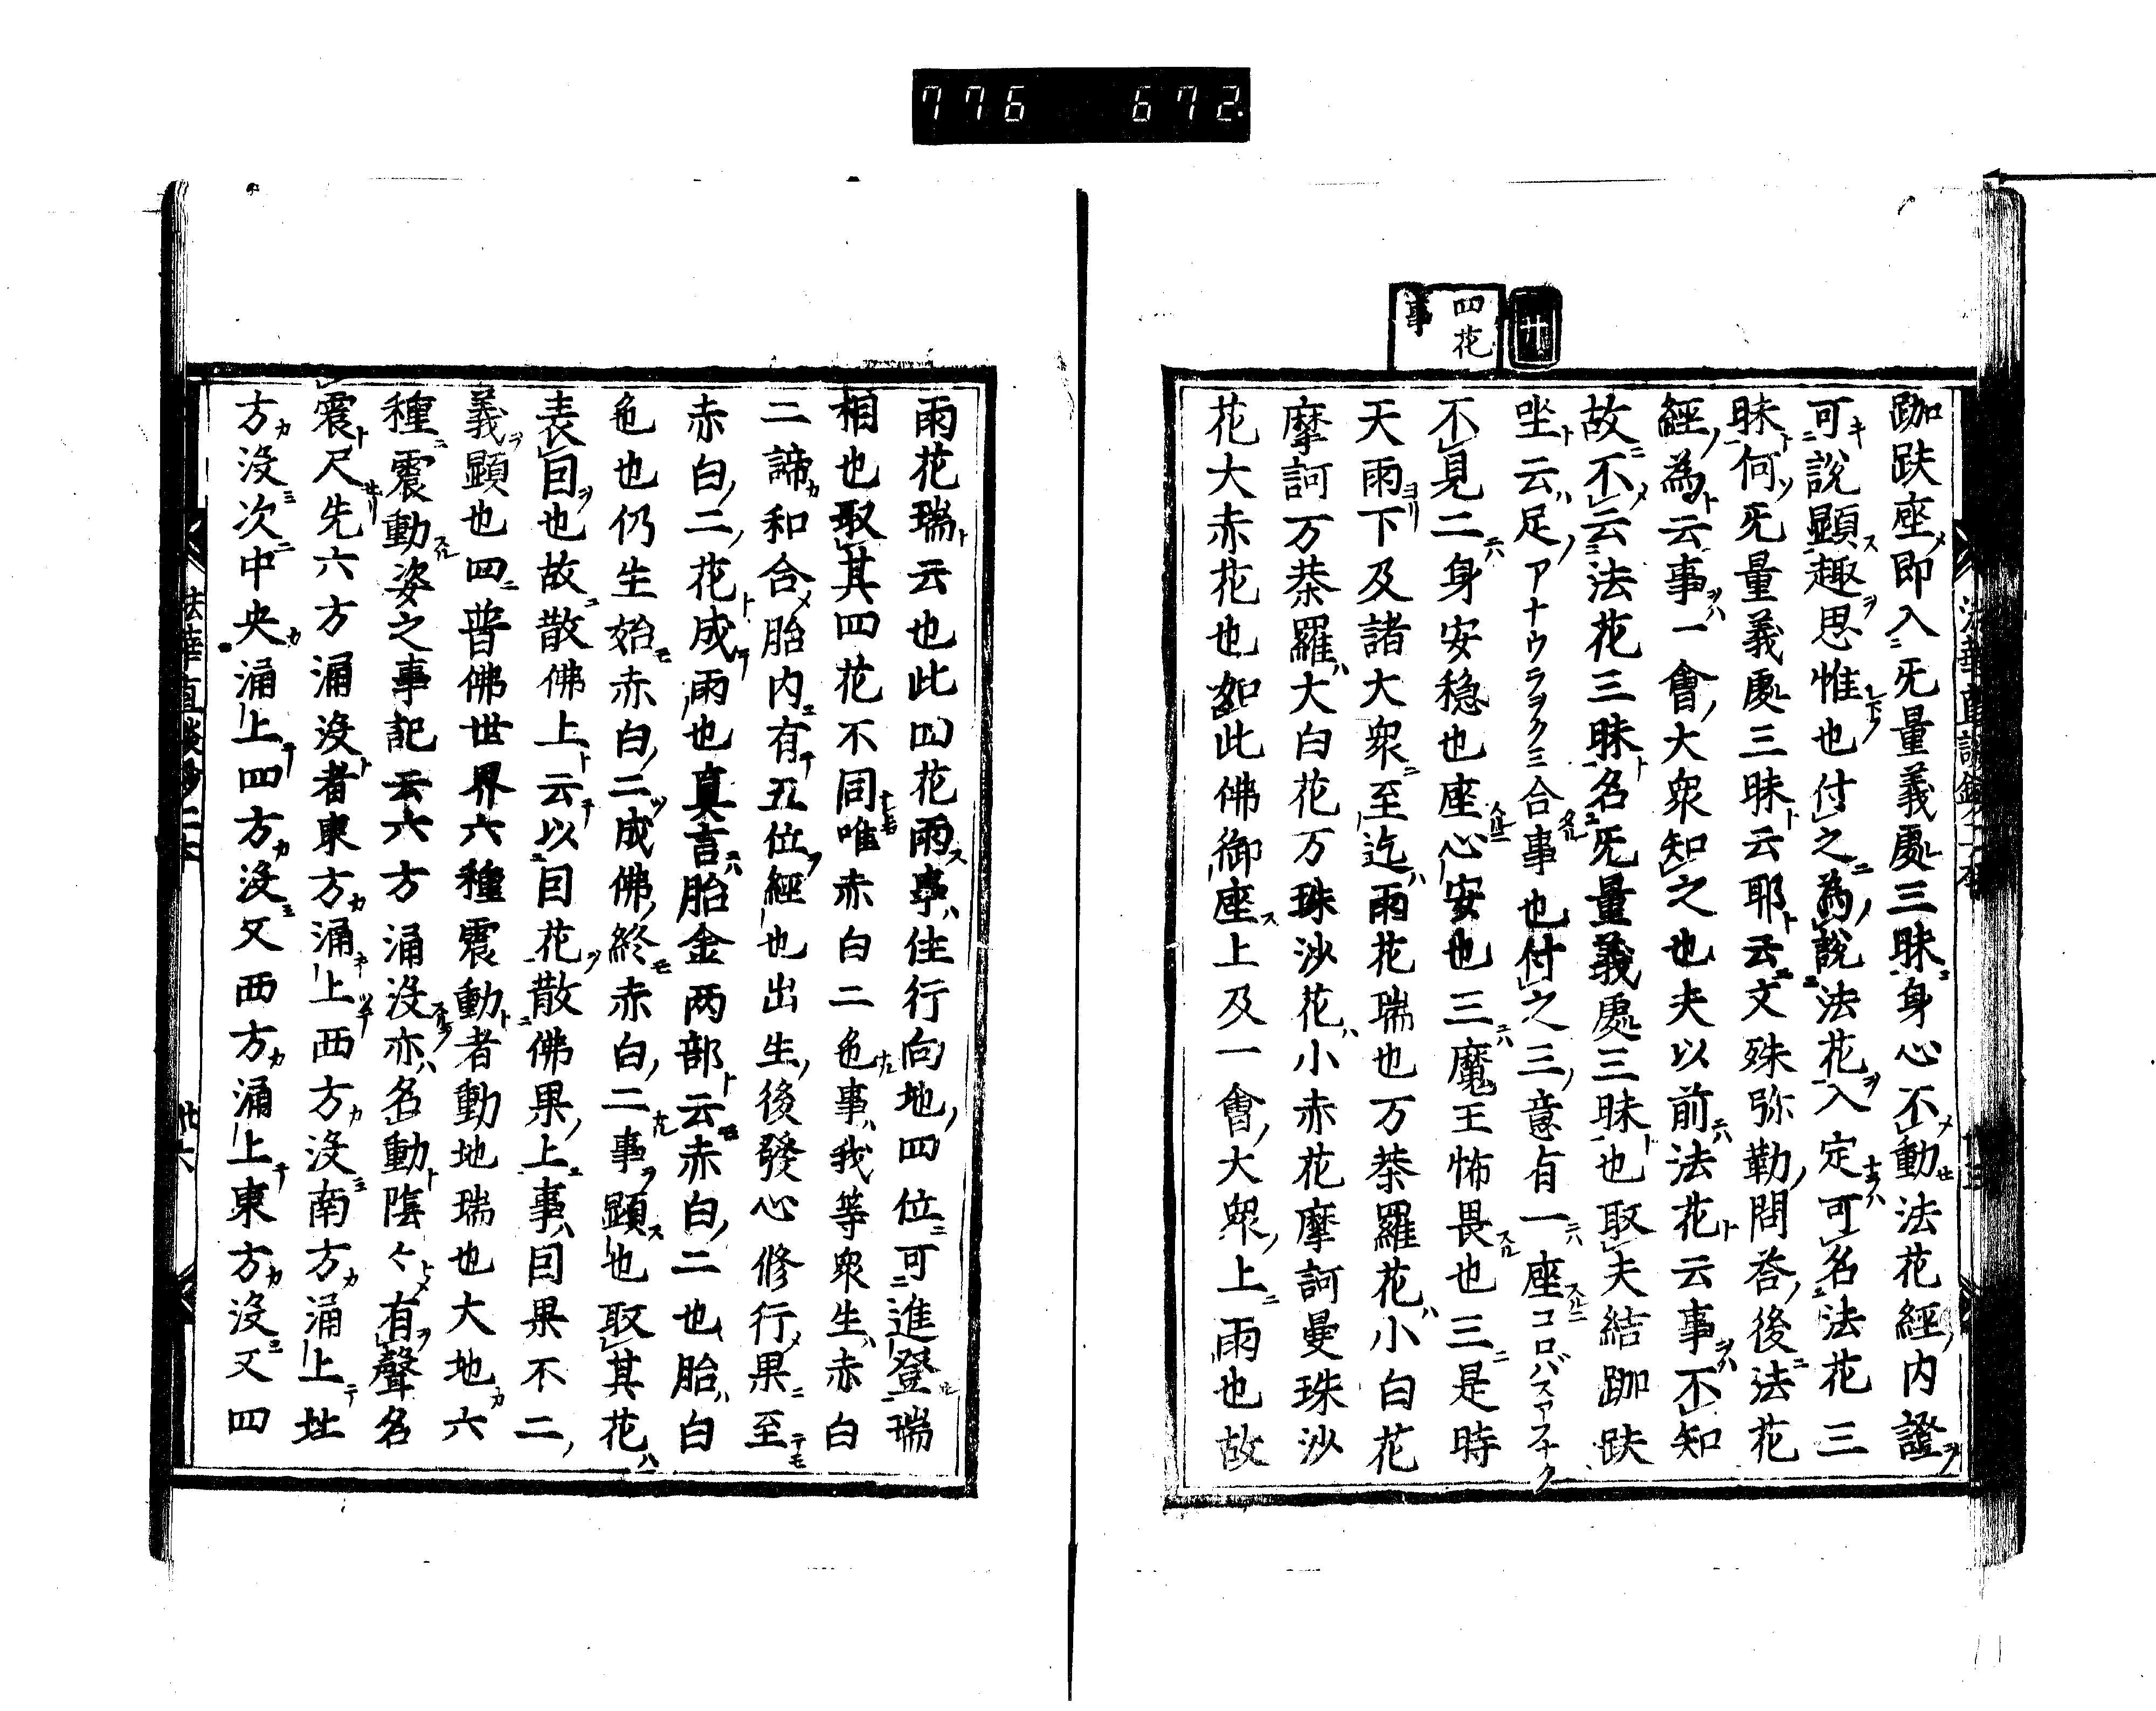 776 672
廿
四花
事
跏趺座即入无量義處三昧身心不動法花經内證
可說顕趣思惟也付之為說法花入定可名法花三
昧何无量義處三昧云耶云文殊弥勒問荅後法花
經為云事一會大衆知之也夫以前法花云事不知
故不云法花三昧名无量義處三昧也取夫結跏趺
坐云足アナウラヲクミ合事也付之三意有一座コロバスアスナク
不見二身安穏也座心安也三魔王怖畏也三是時
天雨下及諸大衆至迄雨花瑞也万荼羅花小白花
摩訶万荼羅大白花万珠沙花小赤花摩訶曼珠沙
花大赤花也如此佛御座上及一會大衆上雨也故
雨花瑞云也此四花雨事住行向地四位可進登瑞
相也取其四花不同唯赤白二色事我等衆生赤白
二諦和合胎内有五位經也出生後發心修行果至
赤白二花成雨也真言胎金两部云赤白二也胎白
色也仍生始赤白二成佛終赤白二事顕也取其花
表因也故散佛上云以因花散佛果上事因果不二
義顕也四普佛世界六種震動者動地瑞也大地六
種震動姿之事記云六方涌没亦名動隂々有聲名
震尺先六方涌没者東方涌上西方没南方涌上北
方没次中央涌上四方没又西方涌上東方没又四